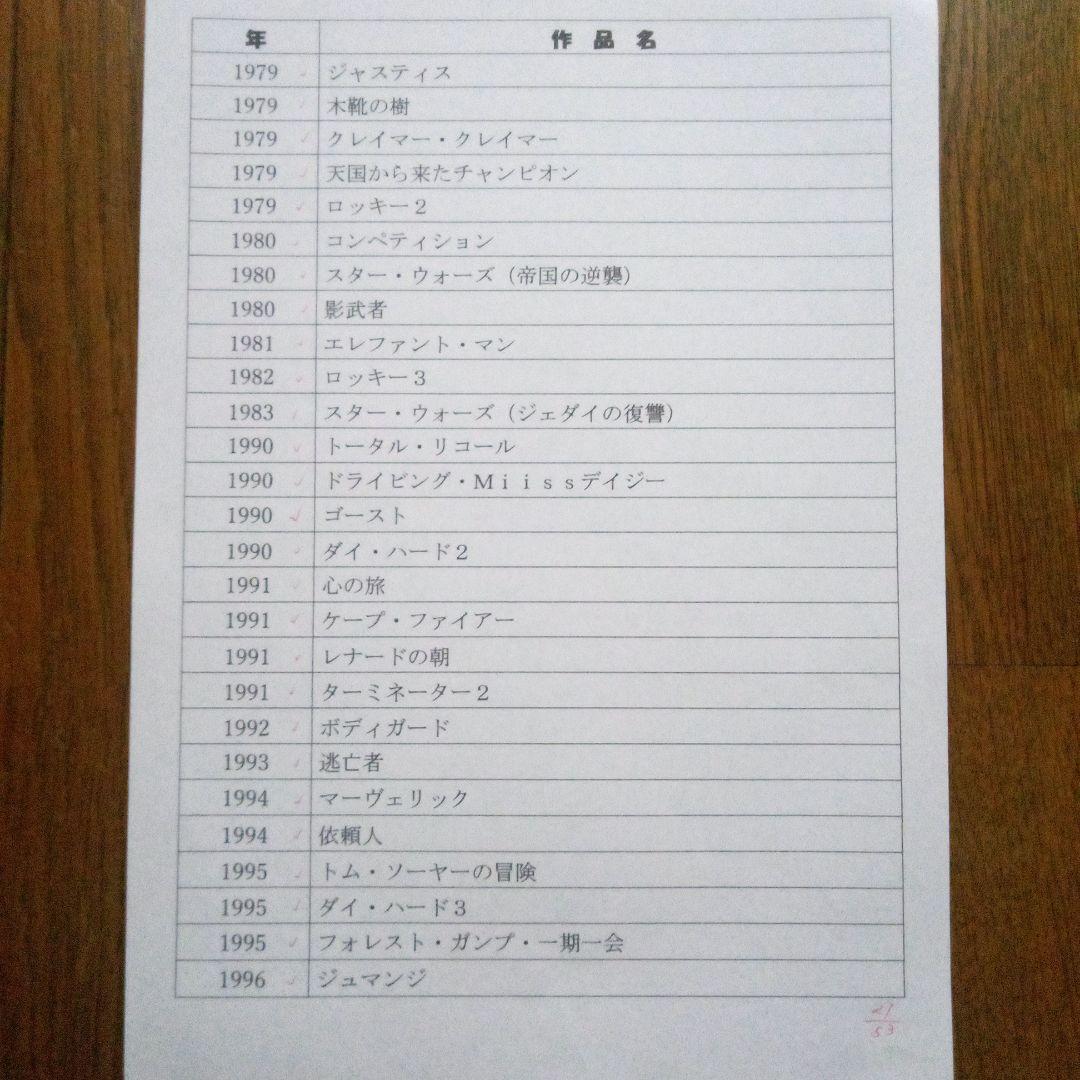 年 作品名
1979 ジャスティス
1979 木靴の樹
1979 クレイマー・クレイマー
1979 天国から来たチャンピオン
1979 ロッキー２
1980 コンペティション
1980 スター・ウォーズ（帝国の逆襲）
1980 影武者
1981 エレファント・マン
1982 ロッキー３
1983 スター・ウォーズ（ジェダイの復讐）
1990 トータル・リコール
1990 ドライビング・Ｍｉｉｓｓデイジー
1990 ゴースト
1990 ダイ・ハード２
1991 心の旅
1991 ケープ・ファイアー
1991 レナードの朝
1991 ターミネーター２
1992 ボディガード
1993 逃亡者
1994 マーヴェリック
1994 依頼人
1995 トム・ソーヤーの冒険
1995 ダイ・ハード３
1995 フォレスト・ガンプ・一期一会
1996 ジュマンジ
53